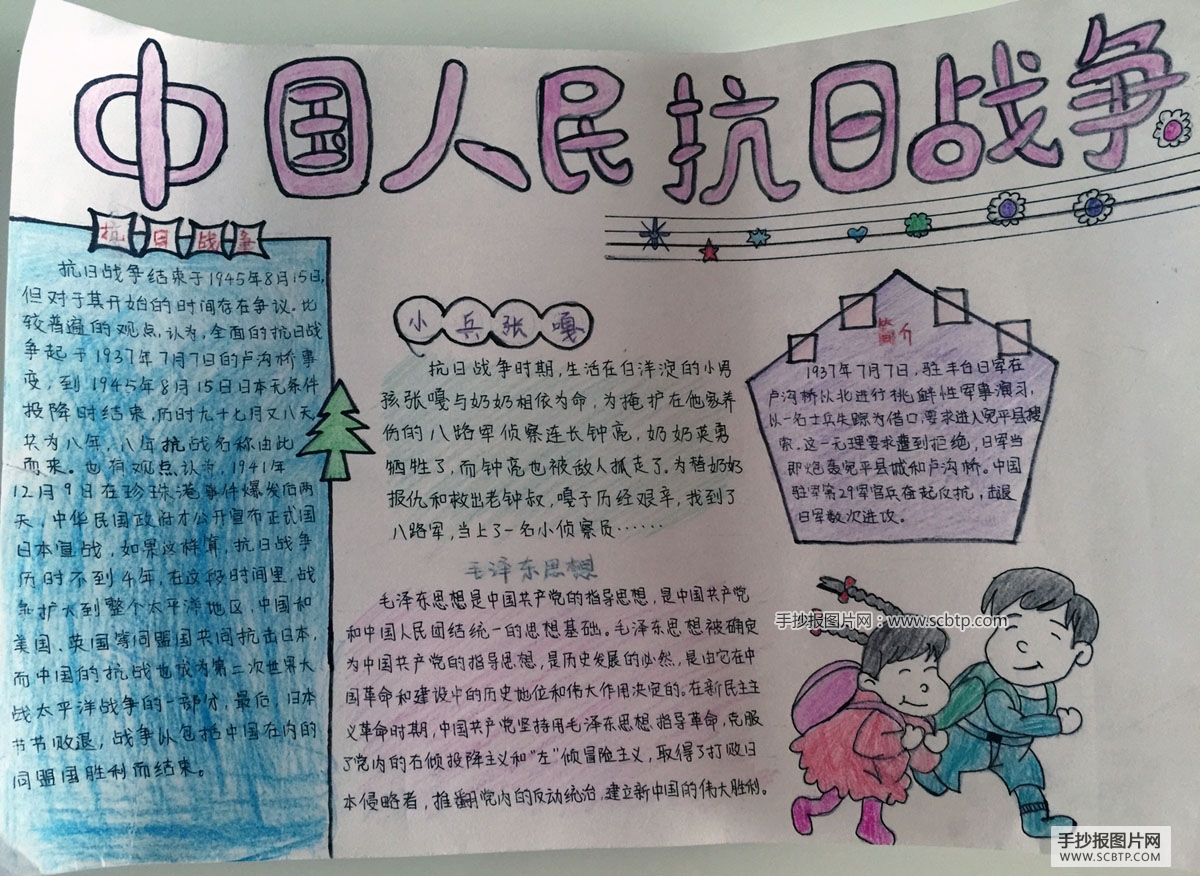 中国人民抗日战争
抗日战争
抗日战争结束于1945年8月15日,
但对于其开始的时间存在争议。比
较普遍的观点,认为,全面的抗日战
争起于1937年7月7日的卢沟桥事
变,到1945年8月15日日本无条件
投降时结束,历时九十七月又八天,
共为八年,八年抗战名称由此
而来。也有观点认为,1941年
12月9日在珍珠港事件爆发后两
天,中华民国政府才公开宣布正式国
日本宣战,如果这样算,抗日战争
历时不到4年,在这段时间里,战
扩大到整个太平洋地区,中国和
美国、英国等同盟国共同抗击日本,
而中国的抗战也成为第二次世界大
战太平洋战争的一部分,最后,日本
节节败退,战争以包括中国在内的
同盟国胜利而结束。
小兵张嘎
抗日战争时期,生活在白洋淀的小男
孩张嘎与奶奶相依为命,为掩护在他家养
伤的八路军侦察连长钟亮,奶奶英勇
牺牲了,而钟亮也被敌人抓走了。为替奶奶
报仇和救出老钟叔,嘎子历经艰辛,找到了
八路军,当上了一名小侦察员……
毛泽东思想
毛泽东思想是中国共产党的指导思想,是中国共产党
和中国人民团结统一的思想基础。毛泽东思想被确定
为中国共产党的指导思想,是历史发展的必然,是由它在中
国革命和建设中的历史地位和伟大作用决定的。在新民主主
义革命时期,中国共产党坚持用毛泽东思想指导革命,克服
了党内的右倾投降主义和“左”倾冒险主义,取得了打败日
本侵略者,推翻党内的反动统治,建立新中国的伟大胜利。
简介
1937年7月7日,驻丰台日军在
卢沟桥以北进行挑衅性军事演习,
以一名士兵失踪为借口,要求进入宛平县搜
索。这一无理要求遭到拒绝,日军当
即炮轰宛平县城和卢沟桥。中国
驻军第29军官兵奋起反抗,击退
日军数次进攻。
手抄报图片网:www.scbtp.com
手抄报图片网
WWW.SCBTP.COM